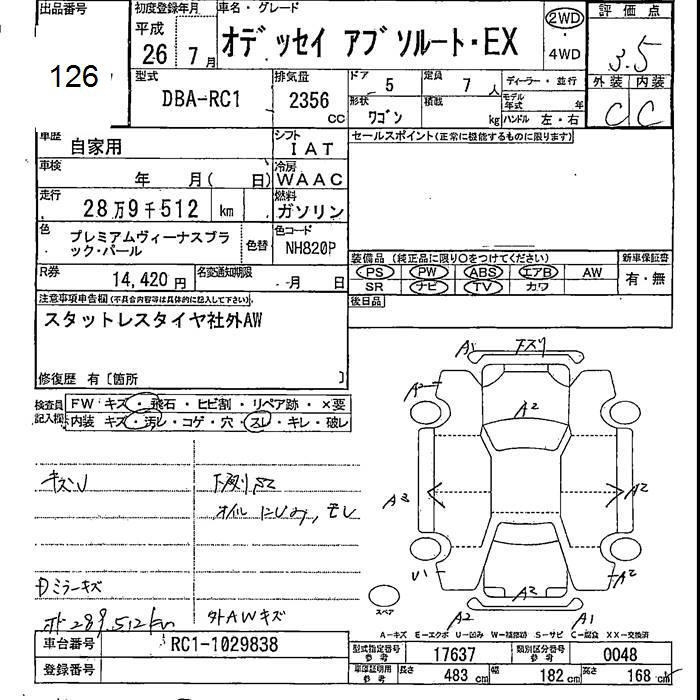 出品番号 初度登録年月 車名・グレード 評価点
126 平成 26 7月 オデッセイ アブソルート・EX 2WD ・ 4WD 3.5
型式 DBA-RC1 排気量 2356 cc ドア 5 定員 7人 ディーラー・並行 外装 内装
形状 ワゴン 積載 kg モデル年式 年 ハンドル 左・右 C C
車歴 自家用 シフト IAT セールスポイント(正常に機能するものに限ります)
車検 年 月( 日) 冷房 WAAC
走行 28万9千512 km 燃料 ガソリン
色 プレミアムヴィーナスブラック・パール 色替 色コード NH820P
装備品 (純正品に限り○をつけてください) 新車保証書
R券 14,420円 名変通知期限 -月 日 PS PW ABS エアB AW 有・無
SR ナビ TV カワ
注意事項申告欄(不具合内容等は具体的に記入して下さい) 後日品
スタットレスタイヤ社外AW
修復歴 有〔箇所 〕
検査員記入欄 FW キズ・飛石・ヒビ割・リペア跡・×要
内装 キズ・汚レ・コゲ・穴・スレ・キレ・破レ
A1 下スリ
A2 A2
キズU
オイルにじみ,モレ
A3 A2
Dミラーキズ
U1 A2 A2
スペア
A2 A1
289,512km 外AWキズ
A-キズ E-エクボ U-凹み W-補修跡 S-サビ C-腐食 XX-交換済
車台番号 RC1-1029838 型式指定番号 参考 17637 類別区分番号 参考 0048
登録番号 車庫証明用 参考 長さ 483 cm 幅 182 cm 高さ 168 cm